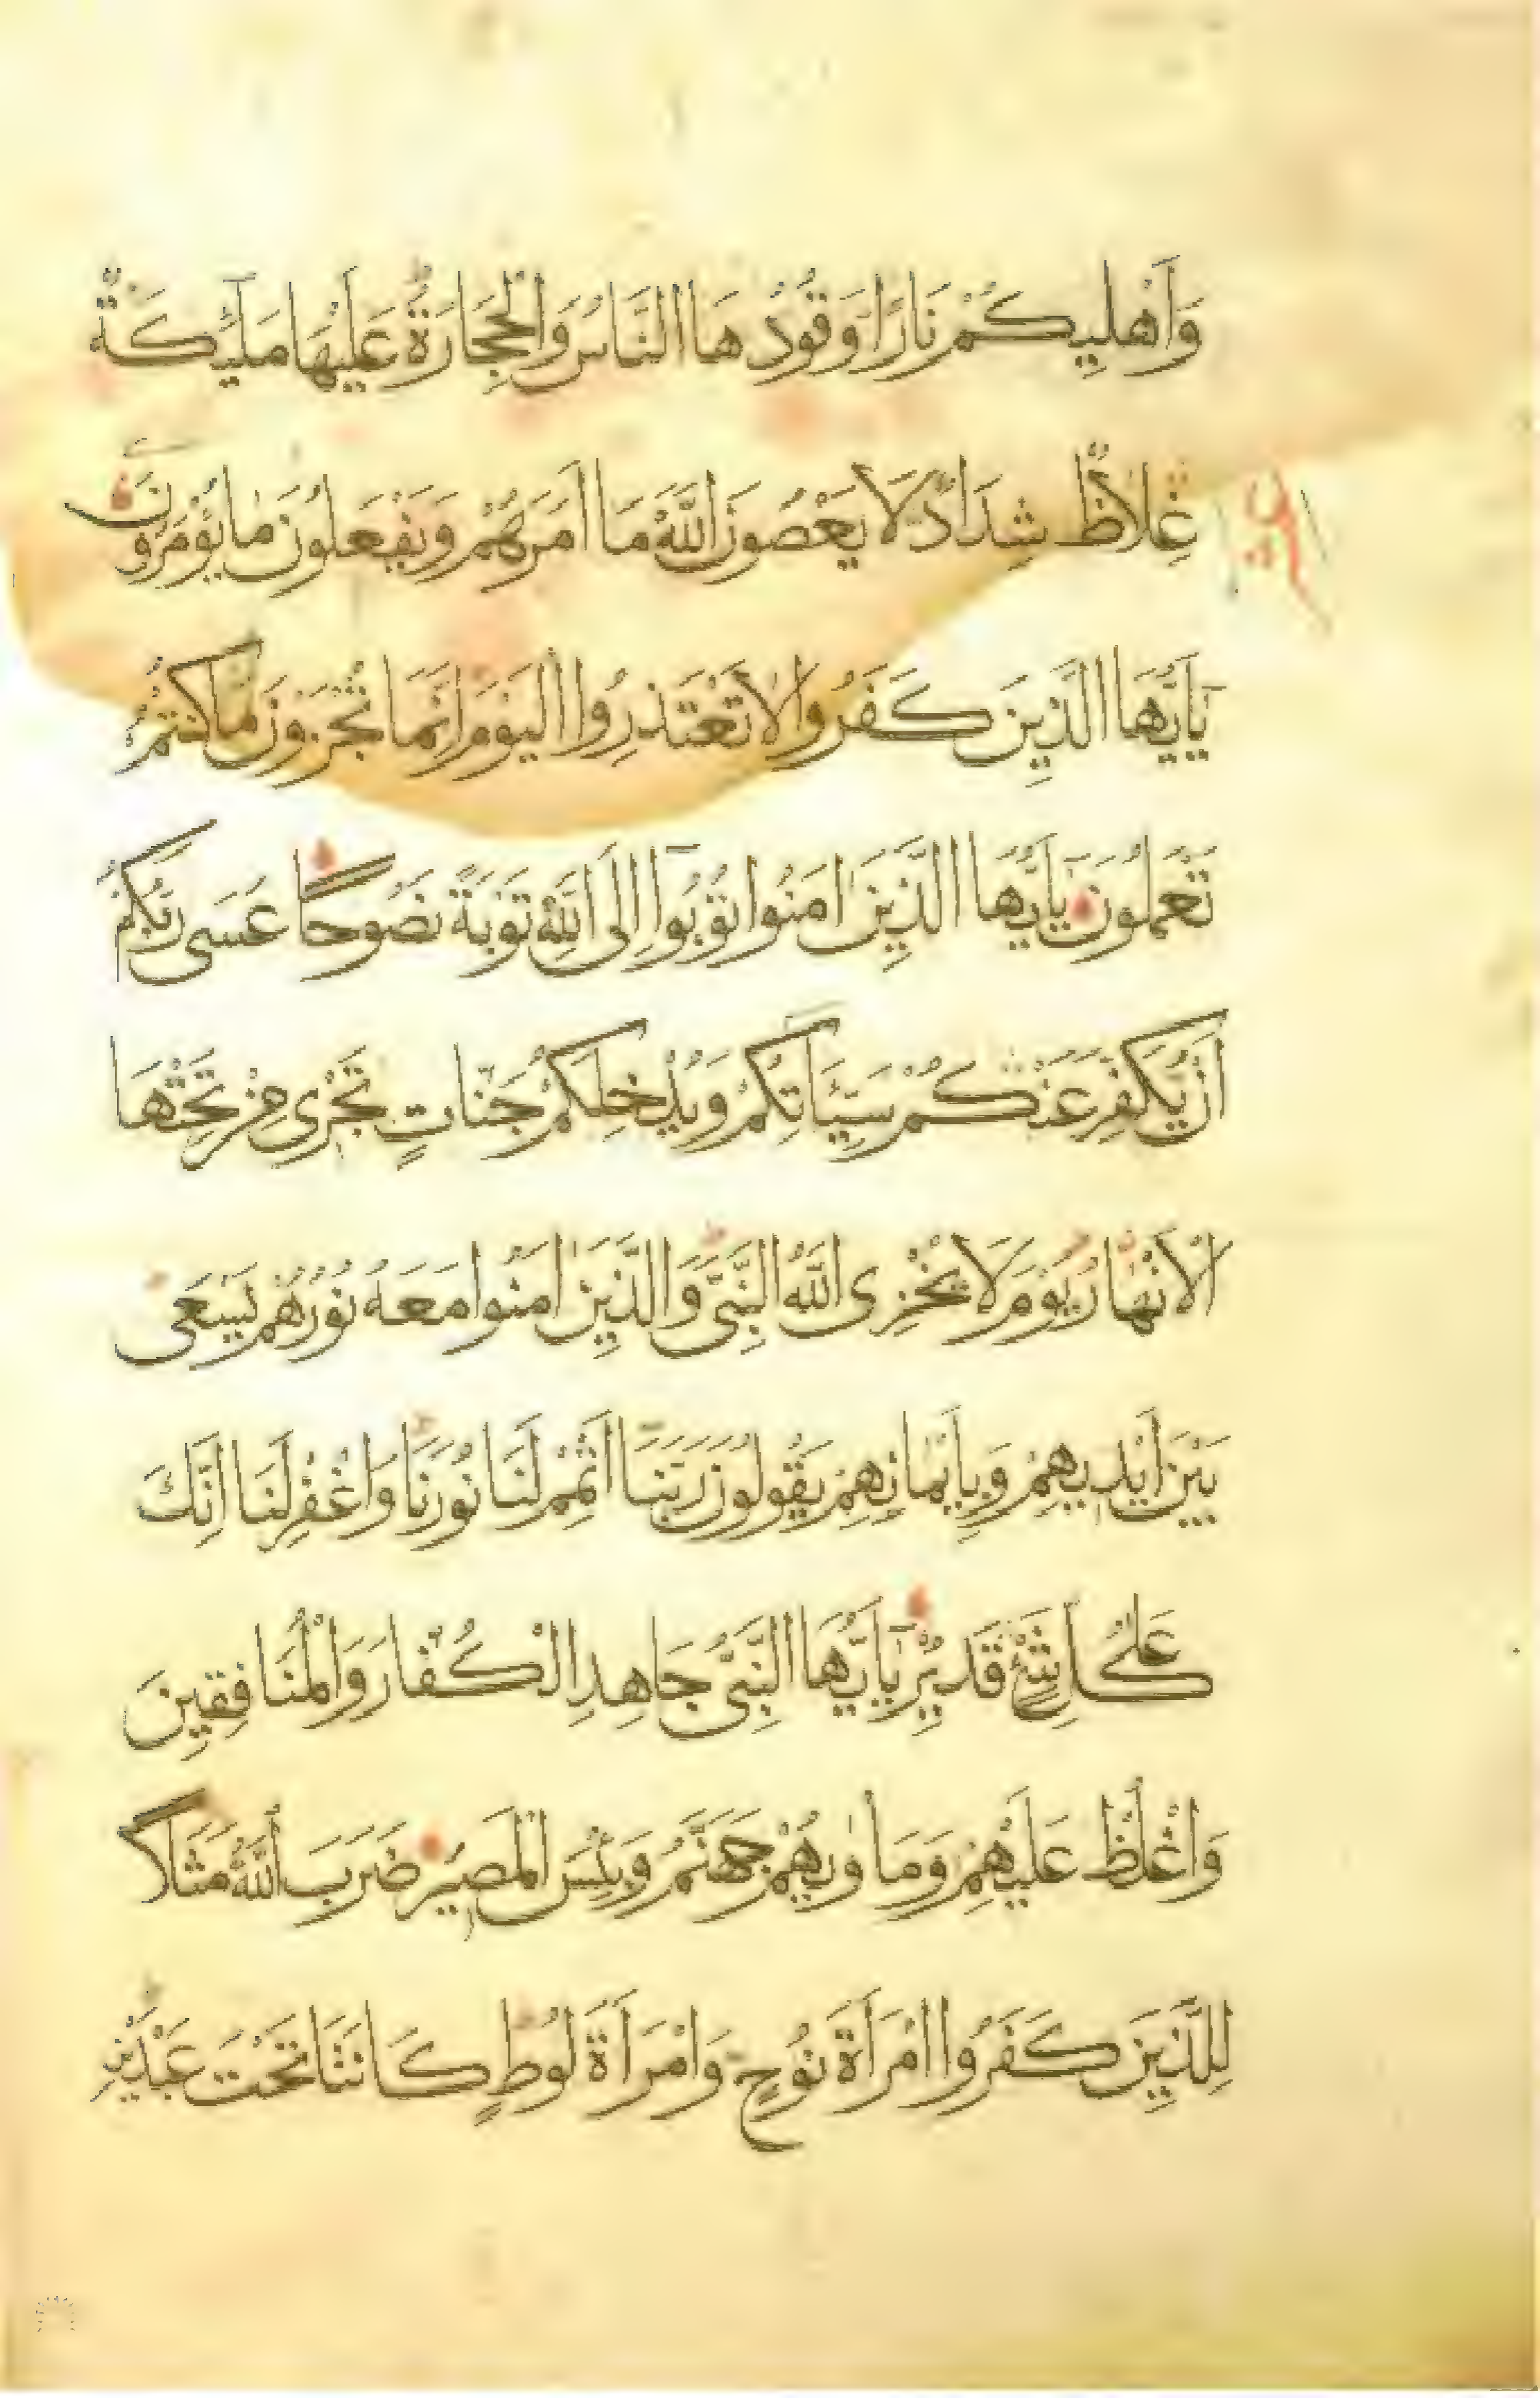 وَاَهْلِيكُمْ نَارًا وَقُودُهَا النَّاسُ وَالْحِجَارَةُ عَلَيْهَا مَلٰٓئِكَةٌ
غِلَاظٌ شِدَادٌ لَا يَعْصُونَ اللّٰهَ مَا اَمَرَهُمْ وَيَفْعَلُونَ مَا يُؤْمَرُونَ
يَا اَيُّهَا الَّذِينَ كَفَرُوا لَا تَعْتَذِرُوا الْيَوْمَ اِنَّمَا تُجْزَوْنَ مَا كُنْتُمْ
تَعْمَلُونَ يَا اَيُّهَا الَّذِينَ اٰمَنُوا تُوبُوٓا اِلَى اللّٰهِ تَوْبَةً نَصُوحًا عَسَى رَبُّكُمْ
اَنْ يُكَفِّرَ عَنْكُمْ سَيِّئَاتِكُمْ وَيُدْخِلَكُمْ جَنَّاتٍ تَجْرِى مِنْ تَحْتِهَا
الْاَنْهَارُ يَوْمَ لَا يُخْزِى اللّٰهُ النَّبِىَّ وَالَّذِينَ اٰمَنُوا مَعَهُ نُورُهُمْ يَسْعَى
بَيْنَ اَيْدِيهِمْ وَبِاَيْمَانِهِمْ يَقُولُونَ رَبَّنَآ اَتْمِمْ لَنَا نُورَنَا وَاغْفِرْ لَنَا اِنَّكَ
عَلَى كُلِّ شَىْءٍ قَدِيرٌ يَآ اَيُّهَا النَّبِىُّ جَاهِدِ الْكُفَّارَ وَالْمُنَافِقِينَ
وَاغْلُظْ عَلَيْهِمْ وَمَأْوٰيهُمْ جَهَنَّمُ وَبِئْسَ الْمَصِيرُ ضَرَبَ اللّٰهُ مَثَلًا
لِلَّذِينَ كَفَرُوا امْرَاَةَ نُوحٍ وَامْرَاَةَ لُوطٍ كَانَتَا تَحْتَ عَبْدَيْنِ